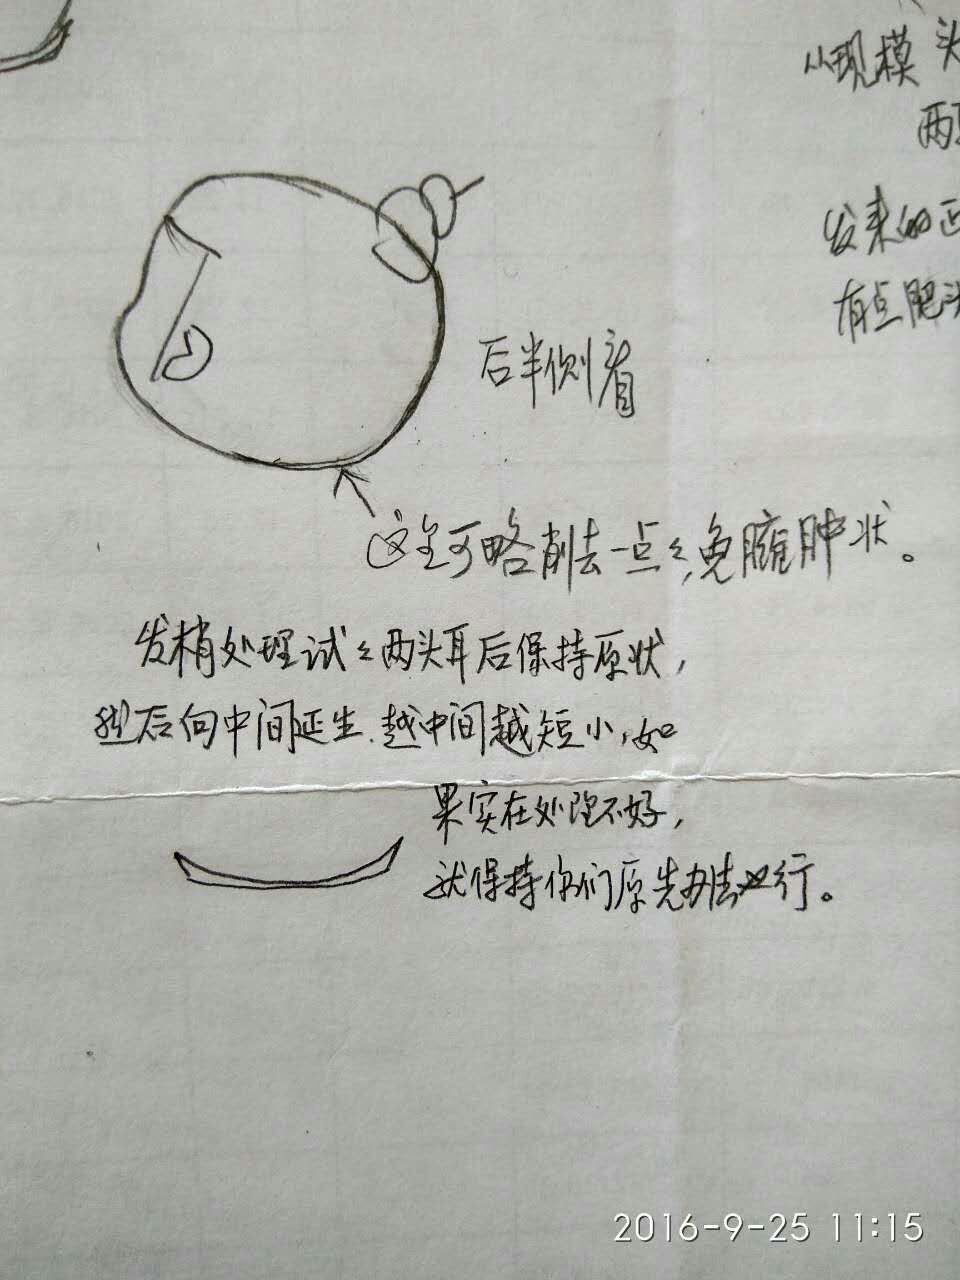 从现模 头
两
发来的正
有点肥头
后半侧着
这里可略削去一点々,免臃肿状。
发梢处理试々两头耳后保持原状,
然后向中间延生.越中间越短小,如
果实在处理不好,
就保持你们原先办法也行。
2016-9-25 11:15